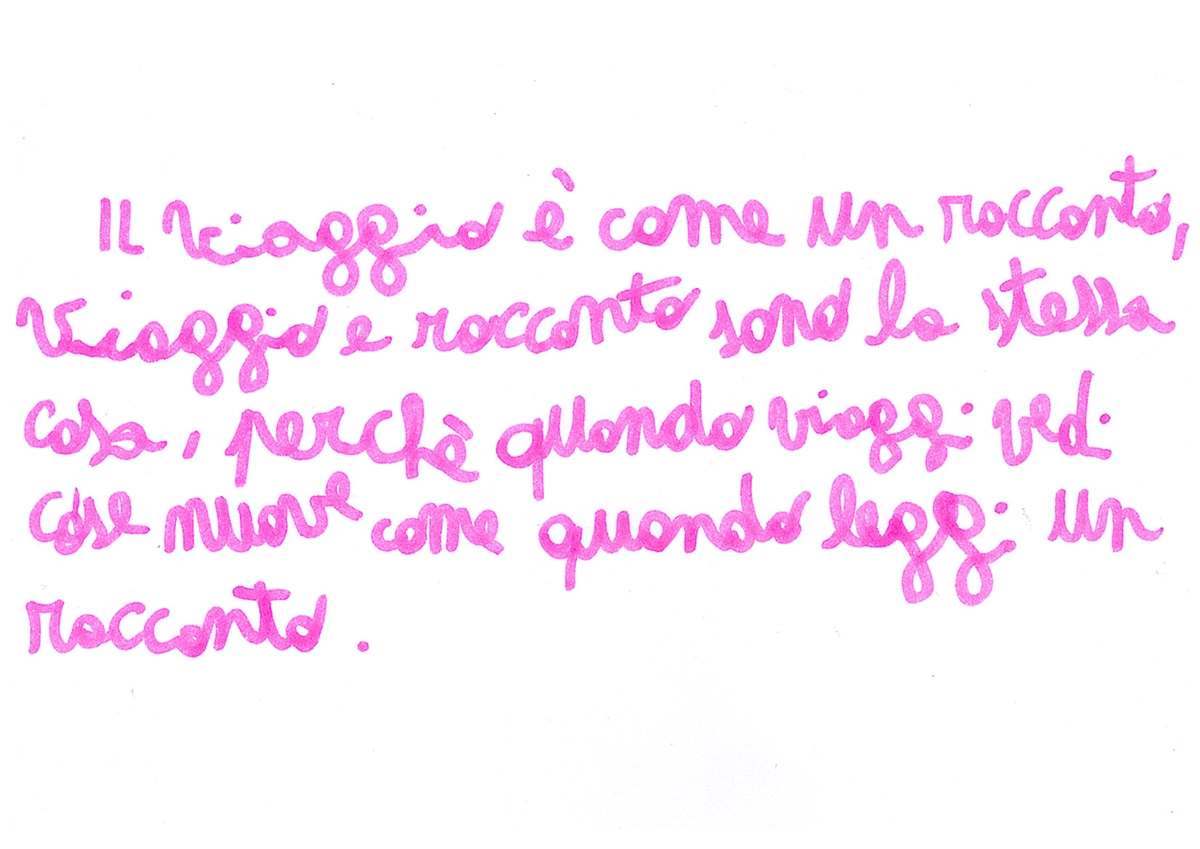 Il viaggio è come un racconto,
viaggio e racconto sono la stessa
cosa, perchè quando viaggi vedi
cose nuove come quando leggi un
racconto.